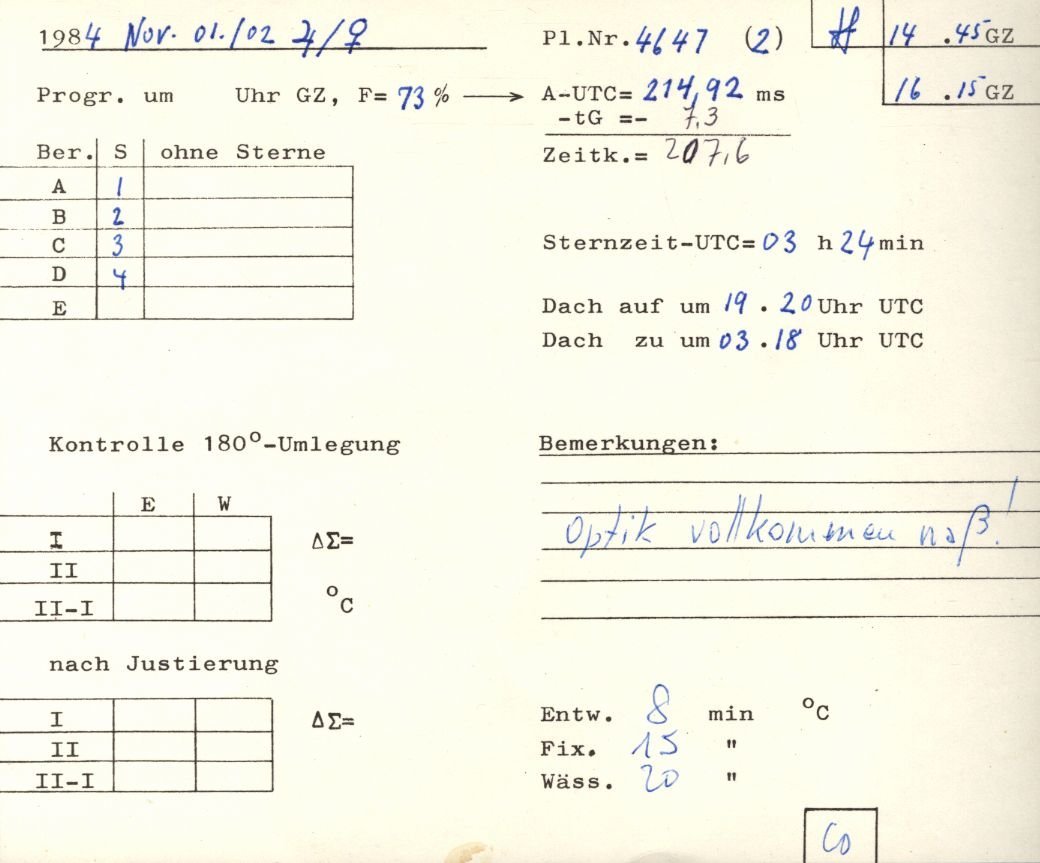 1984 Nov. 01./02 ♃/♀ Pl.Nr. 4647 (2) 14 .45 GZ
Progr. um Uhr GZ, F= 73 % → A-UTC= 214,92 ms 16 .15 GZ
-tG =- 7,3
Ber. S ohne Sterne Zeitk.= 207,6
A 1
B 2
C 3 Sternzeit-UTC= 03 h 24 min
D 4
E Dach auf um 19 . 20 Uhr UTC
Dach zu um 03 . 18 Uhr UTC
Kontrolle 180°-Umlegung Bemerkungen:
E W
I ΔΣ= Optik vollkommen naß!
II
II-I °C
nach Justierung
I ΔΣ= Entw. 8 min °C
II Fix. 15 "
II-I Wäss. 20 "
Co